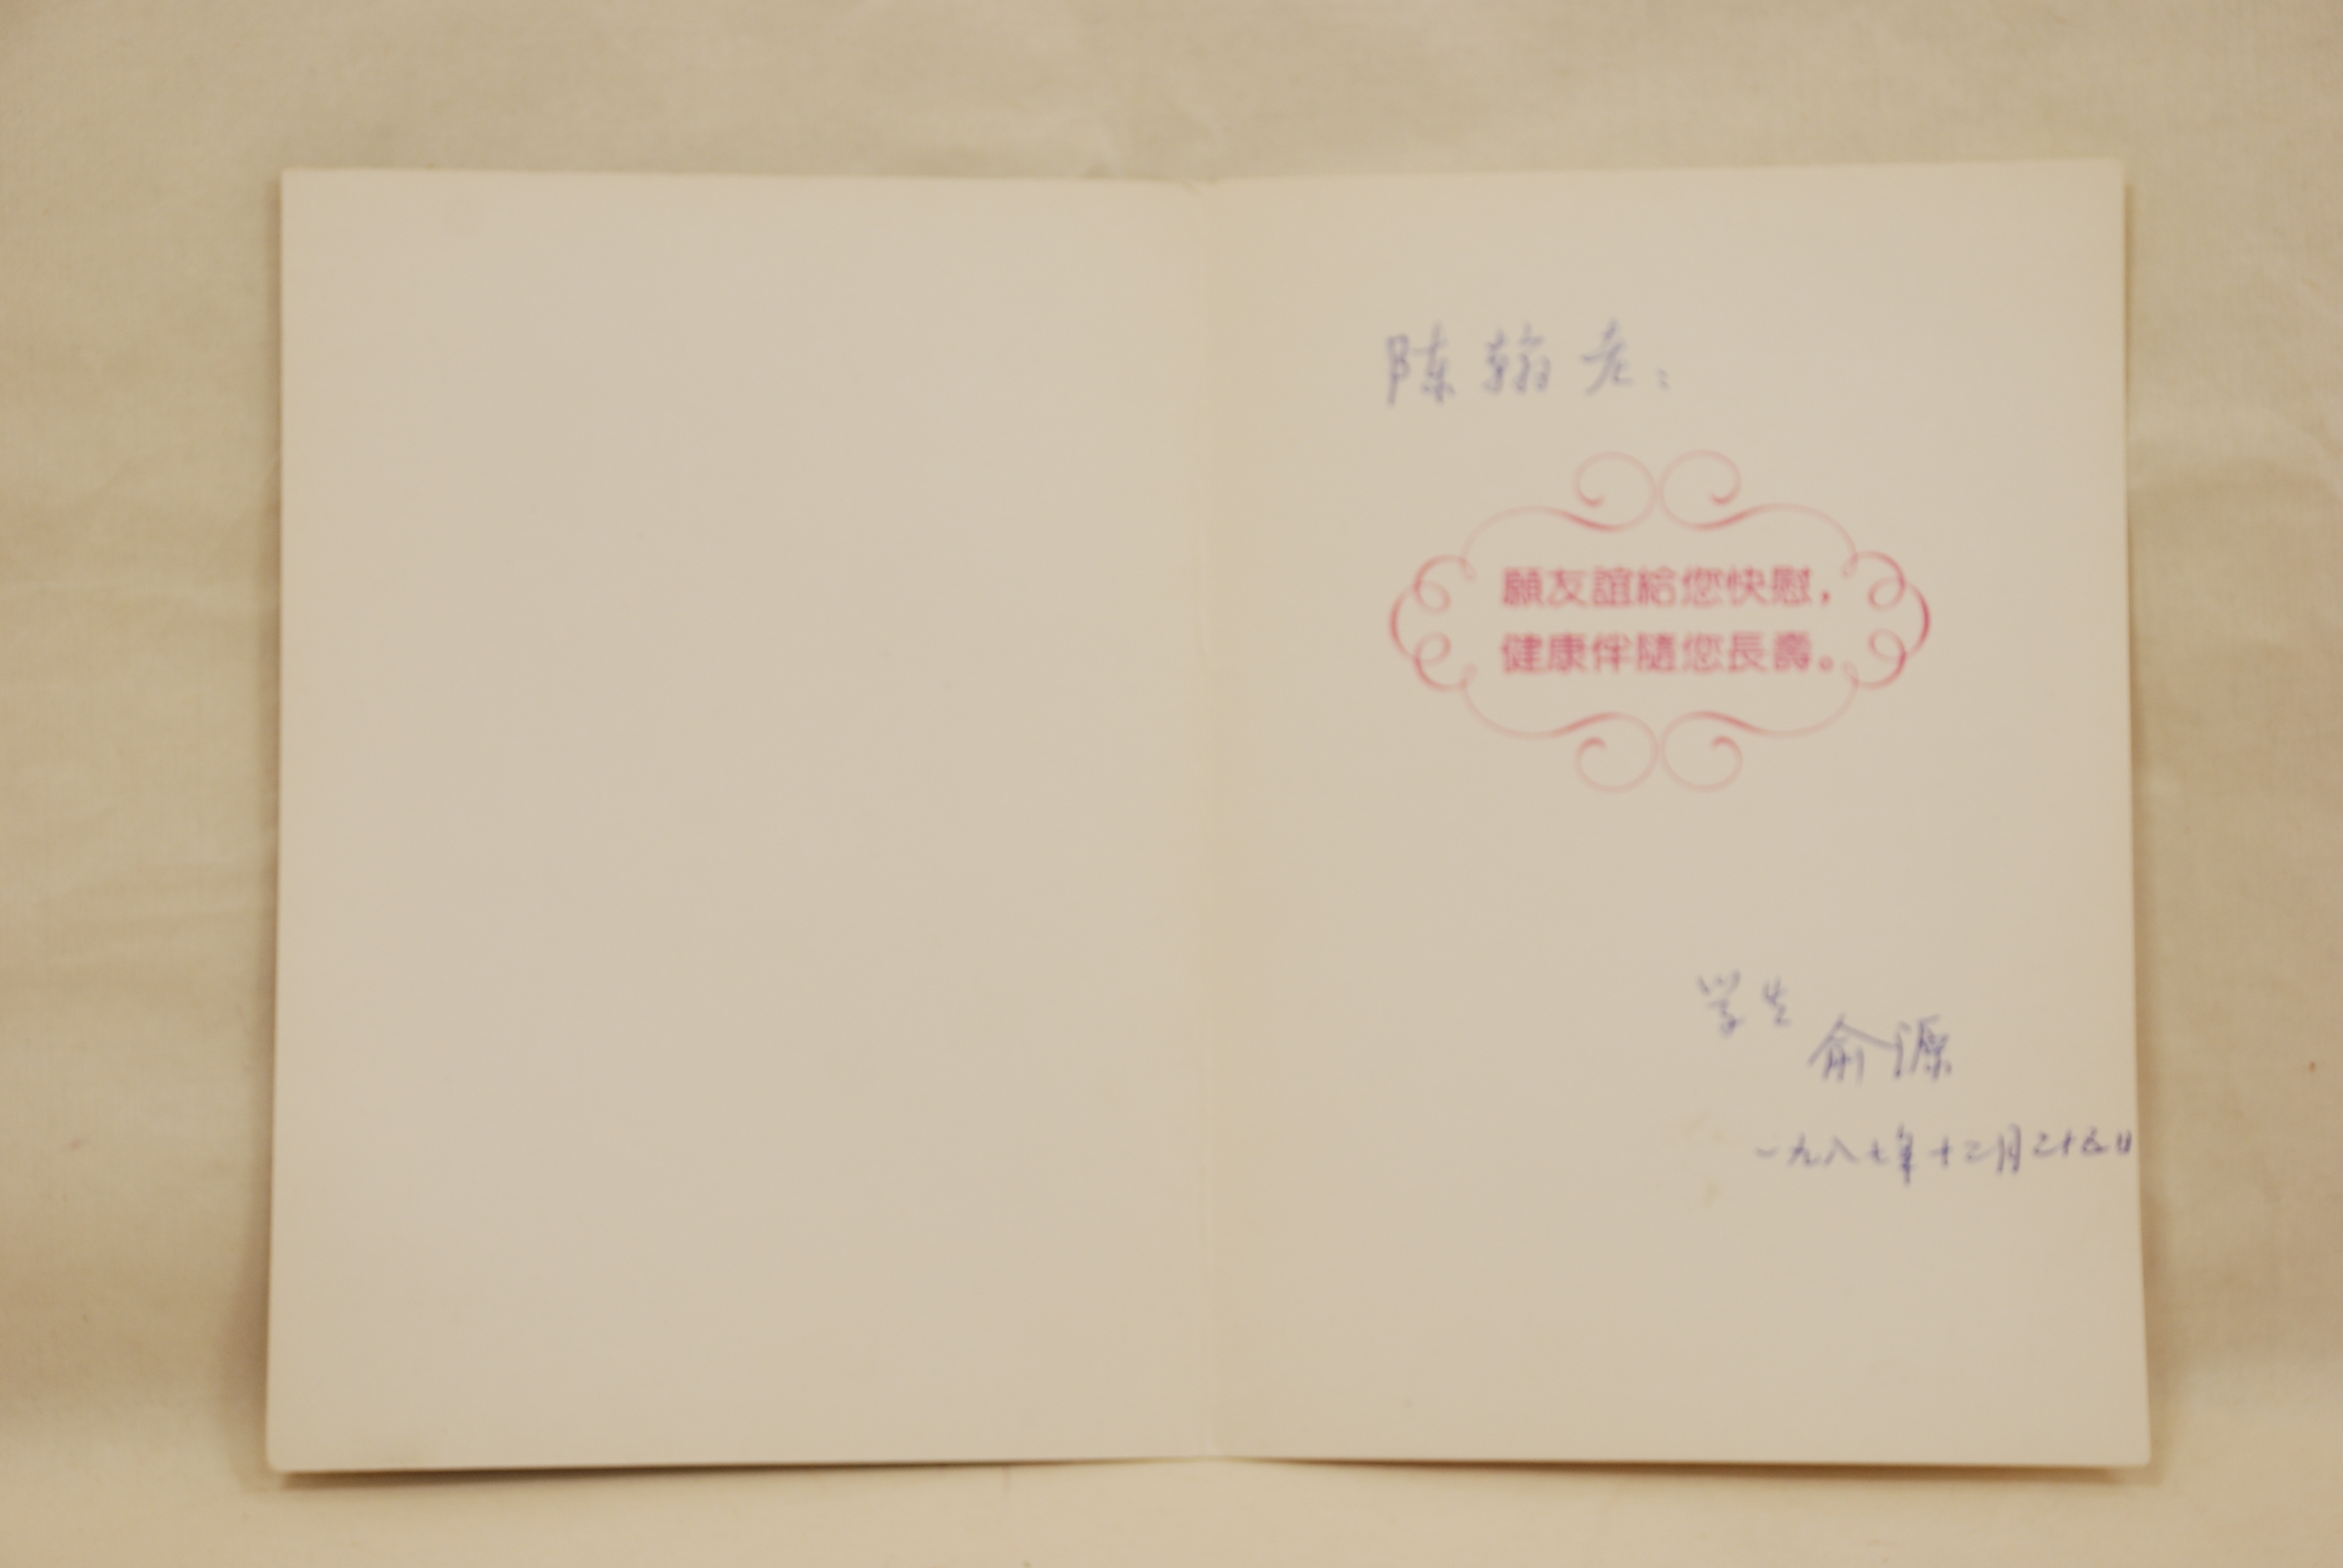 陈翰老：
願友誼給您快慰，
健康伴隨您長壽。
学生
俞源
一九八七年十二月二十五日